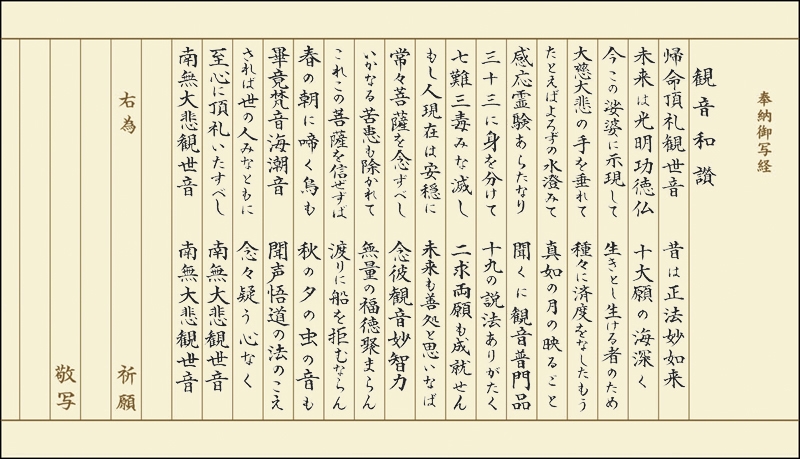 奉納御写経
観音和讃
帰命頂礼観世音 昔は正法妙如来
未来は光明功徳仏 十大願の海深く
今この娑婆に示現して 生きとし生ける者のため
大慈大悲の手を垂れて 種々に済度をなしたもう
たとえばよろずの水澄みて 真如の月の映るごと
感応霊験あらたなり 聞くに観音普門品
三十三に身を分けて 十九の説法ありがたく
七難三毒みな滅し 二求両願も成就せん
もし人現在は安穏に 未来も善処と思いなば
常々菩薩を念ずべし 念彼観音妙智力
いかなる苦患も除かれて 無量の福徳聚まらん
これこの菩薩を信ぜずば 渡りに船を拒むならん
春の朝に啼く鳥も 秋の夕の虫の音も
畢竟梵音海潮音 聞声悟道の法のこえ
されば世の人みなともに 念々疑う心なく
至心に頂礼いたすべし 南無大悲観世音
南無大悲観世音 南無大悲観世音
右為 祈願
敬写